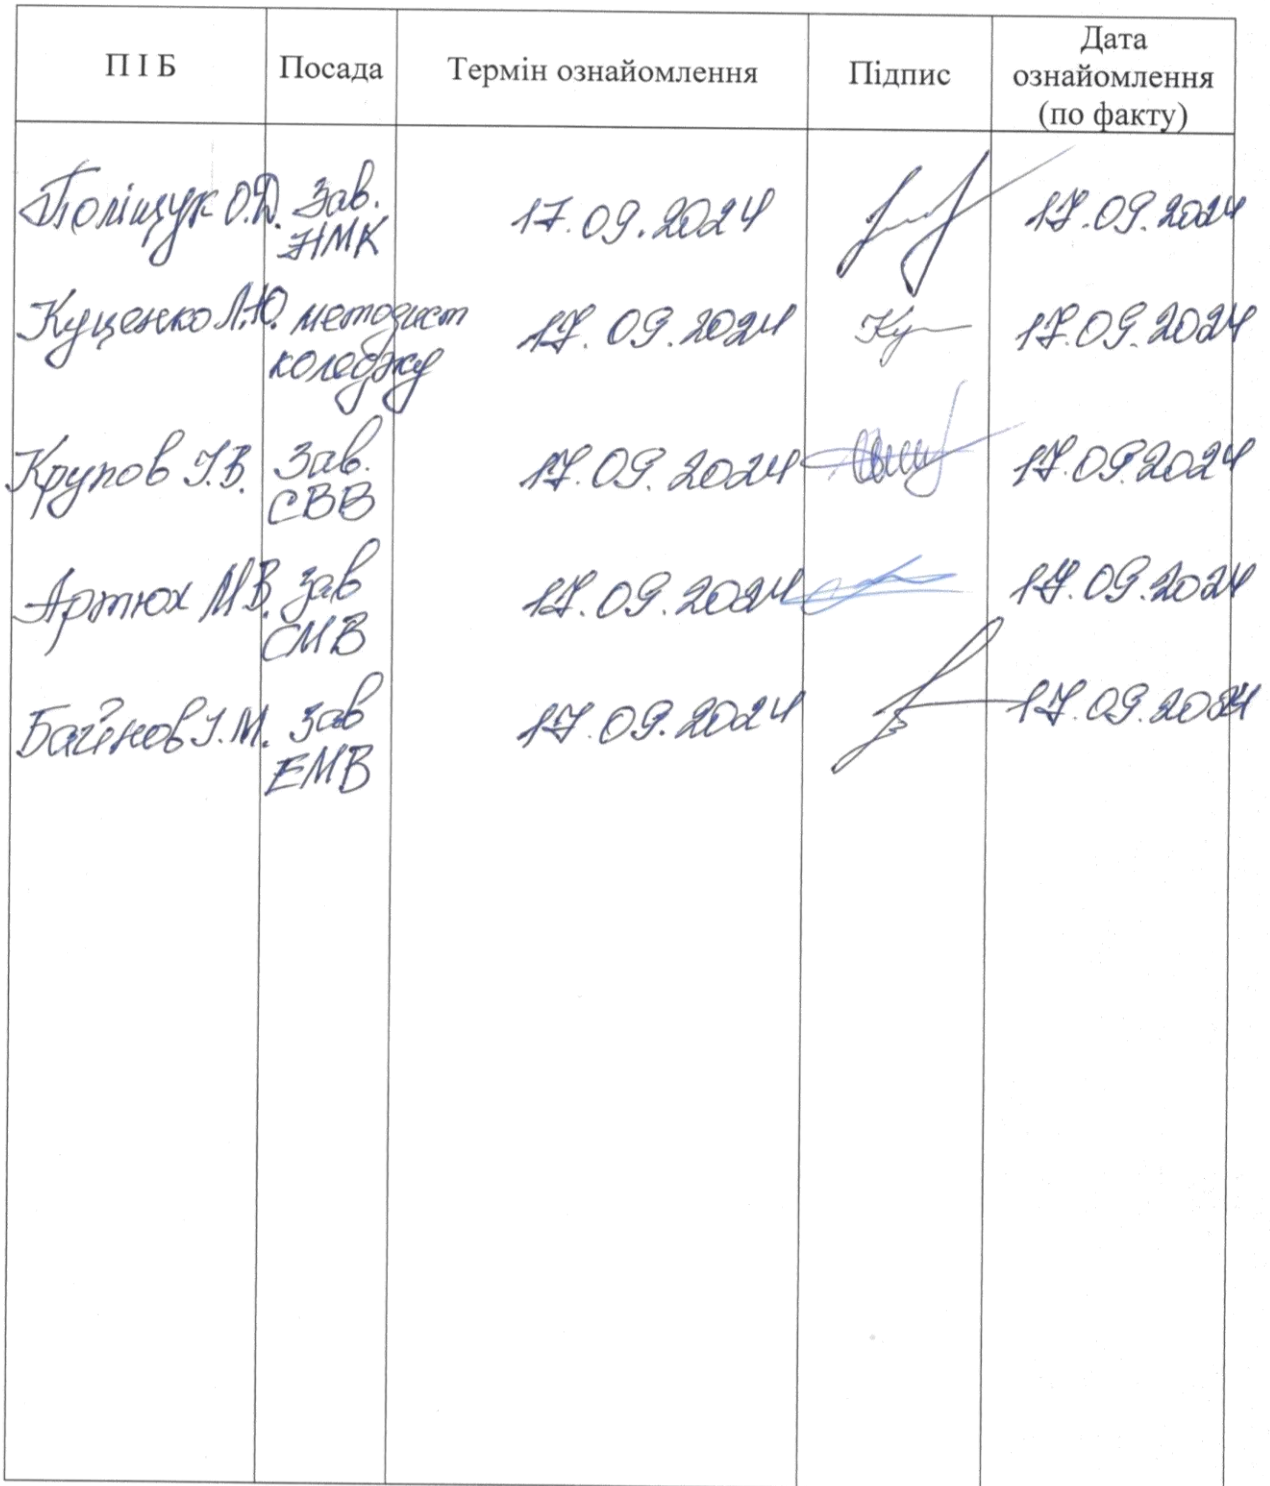 П І Б Посада Термін ознайомлення Підпис Дата ознайомлення (по факту)
Поліщук О.Д. Зав. НМК 17.09.2024 17.09.2024
Куценко Л.Ю. методист коледжу 17.09.2024 Ку 17.09.2024
Крупов І.В. Зав. СВВ 17.09.2024 17.09.2024
Артюх М.В. зав СМВ 17.09.2024 17.09.2024
І.М. зав ЕМВ 17.09.2024 17.09.2024